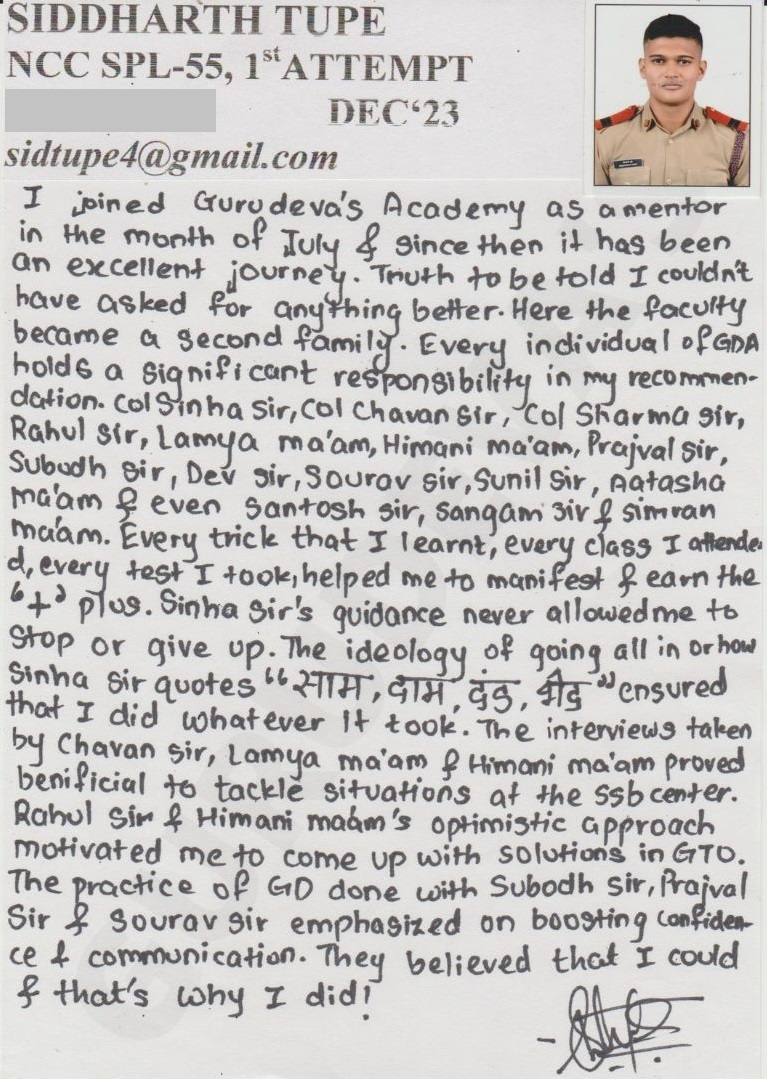 SIDDHARTH TUPE
NCC SPL-55, 1st ATTEMPT
DEC‘23
sidtupe4@gmail.com
I joined Gurudeva's Academy as a mentor
in the month of July & since then it has been
an excellent journey. Truth to be told I couldn't
have asked for anything better. Here the faculty
became a second family. Every individual of GDA
holds a significant responsibility in my recommen-
dation. Col Sinha sir, Col Chavan sir, Col Sharma sir,
Rahul sir, Lamya ma'am, Himani ma'am, Prajval sir,
Subodh sir, Dev sir, Sourav sir, Sunil sir, Aatasha
ma'am & even Santosh sir, Sangam sir & simran
ma'am. Every trick that I learnt, every class I attende
d, every test I took, helped me to manifest & earn the
‘+’ plus. Sinha sir's guidance never allowed me to
stop or give up. The ideology of going all in or how
Sinha sir quotes “साम, दाम, दंड, भेद” ensured
that I did whatever it took. The interviews taken
by Chavan sir, Lamya ma'am & Himani ma'am proved
benificial to tackle situations at the ssb center.
Rahul Sir & Himani maam's optimistic approach
motivated me to come up with solutions in GTO.
The practice of GD done with Subodh sir, Prajval
Sir & Sourav sir emphasized on boosting confiden-
ce & communication. They believed that I could
& that's why I did!